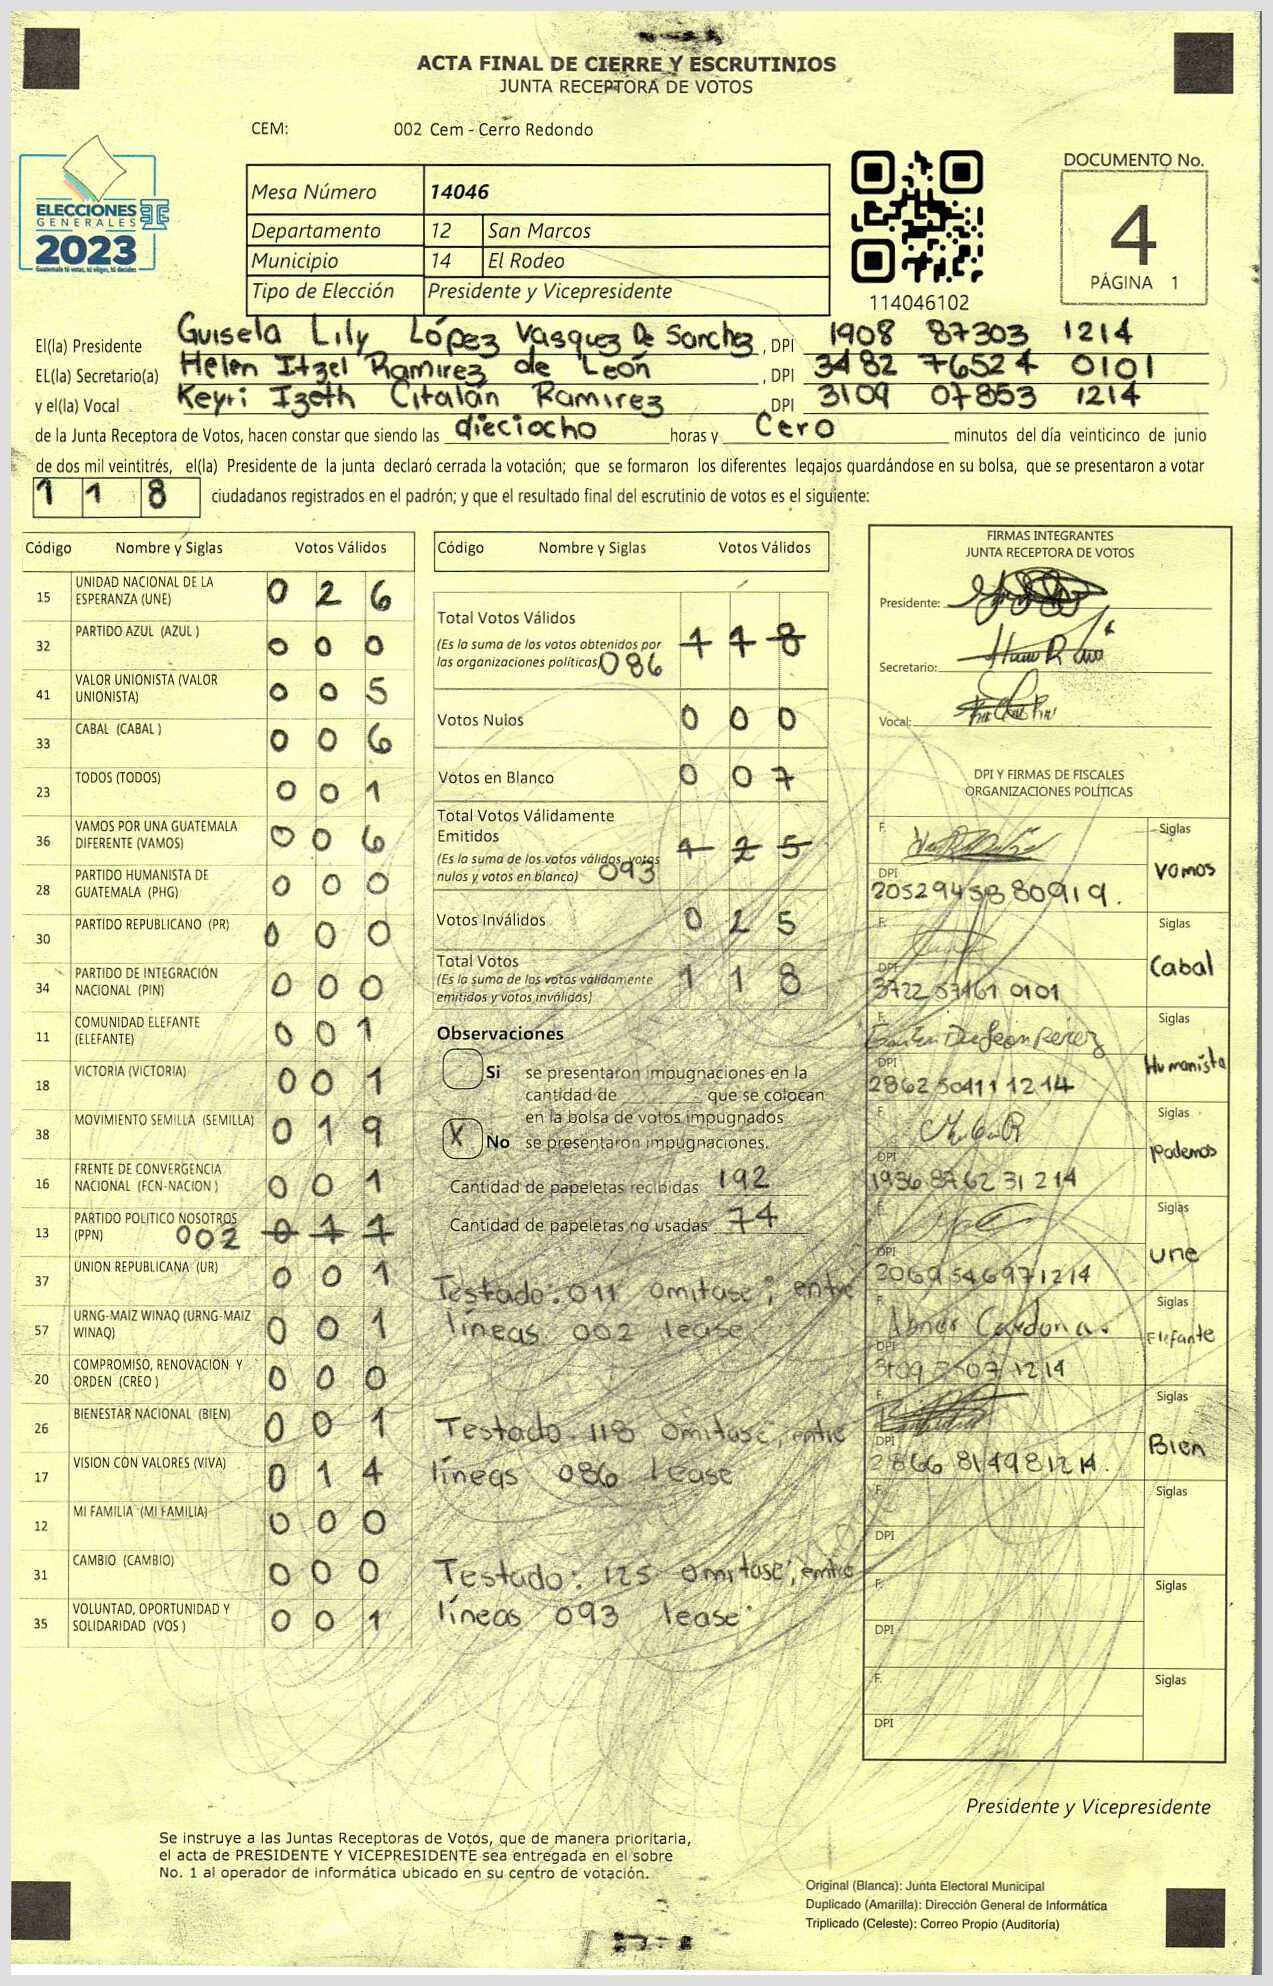 ACTA FINAL DE CIERRE Y ESCRUTINIOS
JUNTA RECEPTORA DE VOTOS
CEM: 002 Cem - Cerro Redondo
ELECCIONES
GENERALES
2023
Guatemala tú votas, tú eliges, tú decides
Mesa Número 14046
Departamento 12 San Marcos
Municipio 14 El Rodeo
Tipo de Elección Presidente y Vicepresidente
114046102
DOCUMENTO No.
4
PÁGINA 1
El(la) Presidente Guisela Lily López Vasquez De Sanchez, DPI 1908 87303 1214
EL(la) Secretario(a) Helen Itzel Ramirez de León, DPI 3482 76524 0101
y el(la) Vocal Keyri Izeth Citalán Ramirez DPI 3109 07853 1214
de la Junta Receptora de Votos, hacen constar que siendo las dieciocho horas y Cero minutos del día veinticinco de junio
de dos mil veintitrés, el(la) Presidente de la junta declaró cerrada la votación; que se formaron los diferentes legajos guardándose en su bolsa, que se presentaron a votar
118 ciudadanos registrados en el padrón; y que el resultado final del escrutinio de votos es el siguiente:
Código Nombre y Siglas Votos Válidos
15 UNIDAD NACIONAL DE LA ESPERANZA (UNE) 026
32 PARTIDO AZUL (AZUL ) 000
41 VALOR UNIONISTA (VALOR UNIONISTA) 005
33 CABAL (CABAL ) 006
23 TODOS (TODOS) 001
36 VAMOS POR UNA GUATEMALA DIFERENTE (VAMOS) 006
28 PARTIDO HUMANISTA DE GUATEMALA (PHG) 000
30 PARTIDO REPUBLICANO (PR) 000
34 PARTIDO DE INTEGRACIÓN NACIONAL (PIN) 000
11 COMUNIDAD ELEFANTE (ELEFANTE) 001
18 VICTORIA (VICTORIA) 001
38 MOVIMIENTO SEMILLA (SEMILLA) 019
16 FRENTE DE CONVERGENCIA NACIONAL (FCN-NACION ) 001
13 PARTIDO POLITICO NOSOTROS (PPN) 002 011
37 UNION REPUBLICANA (UR) 001
57 URNG-MAIZ WINAQ (URNG-MAIZ WINAQ) 001
20 COMPROMISO, RENOVACION Y ORDEN (CREO ) 000
26 BIENESTAR NACIONAL (BIEN) 001
17 VISION CON VALORES (VIVA) 014
12 MI FAMILIA (MI FAMILIA) 000
31 CAMBIO (CAMBIO) 000
35 VOLUNTAD, OPORTUNIDAD Y SOLIDARIDAD (VOS ) 001
Código Nombre y Siglas Votos Válidos
Total Votos Válidos 118
(Es la suma de los votos obtenidos por
las organizaciones políticas) 086
Votos Nulos 000
Votos en Blanco 007
Total Votos Válidamente
Emitidos 125
(Es la suma de los votos válidos, votos
nulos y votos en blanco) 093
Votos Inválidos 025
Total Votos 118
(Es la suma de los votos válidamente
emitidos y votos inválidos)
Observaciones
Si se presentaron impugnaciones en la
cantidad de que se colocan
en la bolsa de votos impugnados
X No se presentaron impugnaciones.
Cantidad de papeletas recibidas 192
Cantidad de papeletas no usadas 74
Testado: 011 omitase; entre
líneas 002 lease
Testado. 118 omitase; entre
líneas 086 lease
Testado: 125 omitase; entre
líneas 093 lease
FIRMAS INTEGRANTES
JUNTA RECEPTORA DE VOTOS
Presidente:
Secretario:
Vocal:
DPI Y FIRMAS DE FISCALES
ORGANIZACIONES POLÍTICAS
F. Siglas
Vamos
DPI
F. Siglas
Cabal
DPI
3722 57161 0101
F. Siglas
Humanista
DPI
2862 50411 1214
F. Siglas
Podemos
DPI
1936 8762 31 214
F. Siglas
une
DPI
2069546971214
F. Abner Cardona. Siglas
Elefante
DPI
F. Siglas
Bien
DPI
2866 814981214.
F. Siglas
DPI
F. Siglas
DPI
F. Siglas
DPI
Presidente y Vicepresidente
Se instruye a las Juntas Receptoras de Votos, que de manera prioritaria,
el acta de PRESIDENTE Y VICEPRESIDENTE sea entregada en el sobre
No. 1 al operador de informática ubicado en su centro de votación.
Original (Blanca): Junta Electoral Municipal
Duplicado (Amarilla): Dirección General de Informática
Triplicado (Celeste): Correo Propio (Auditoría)